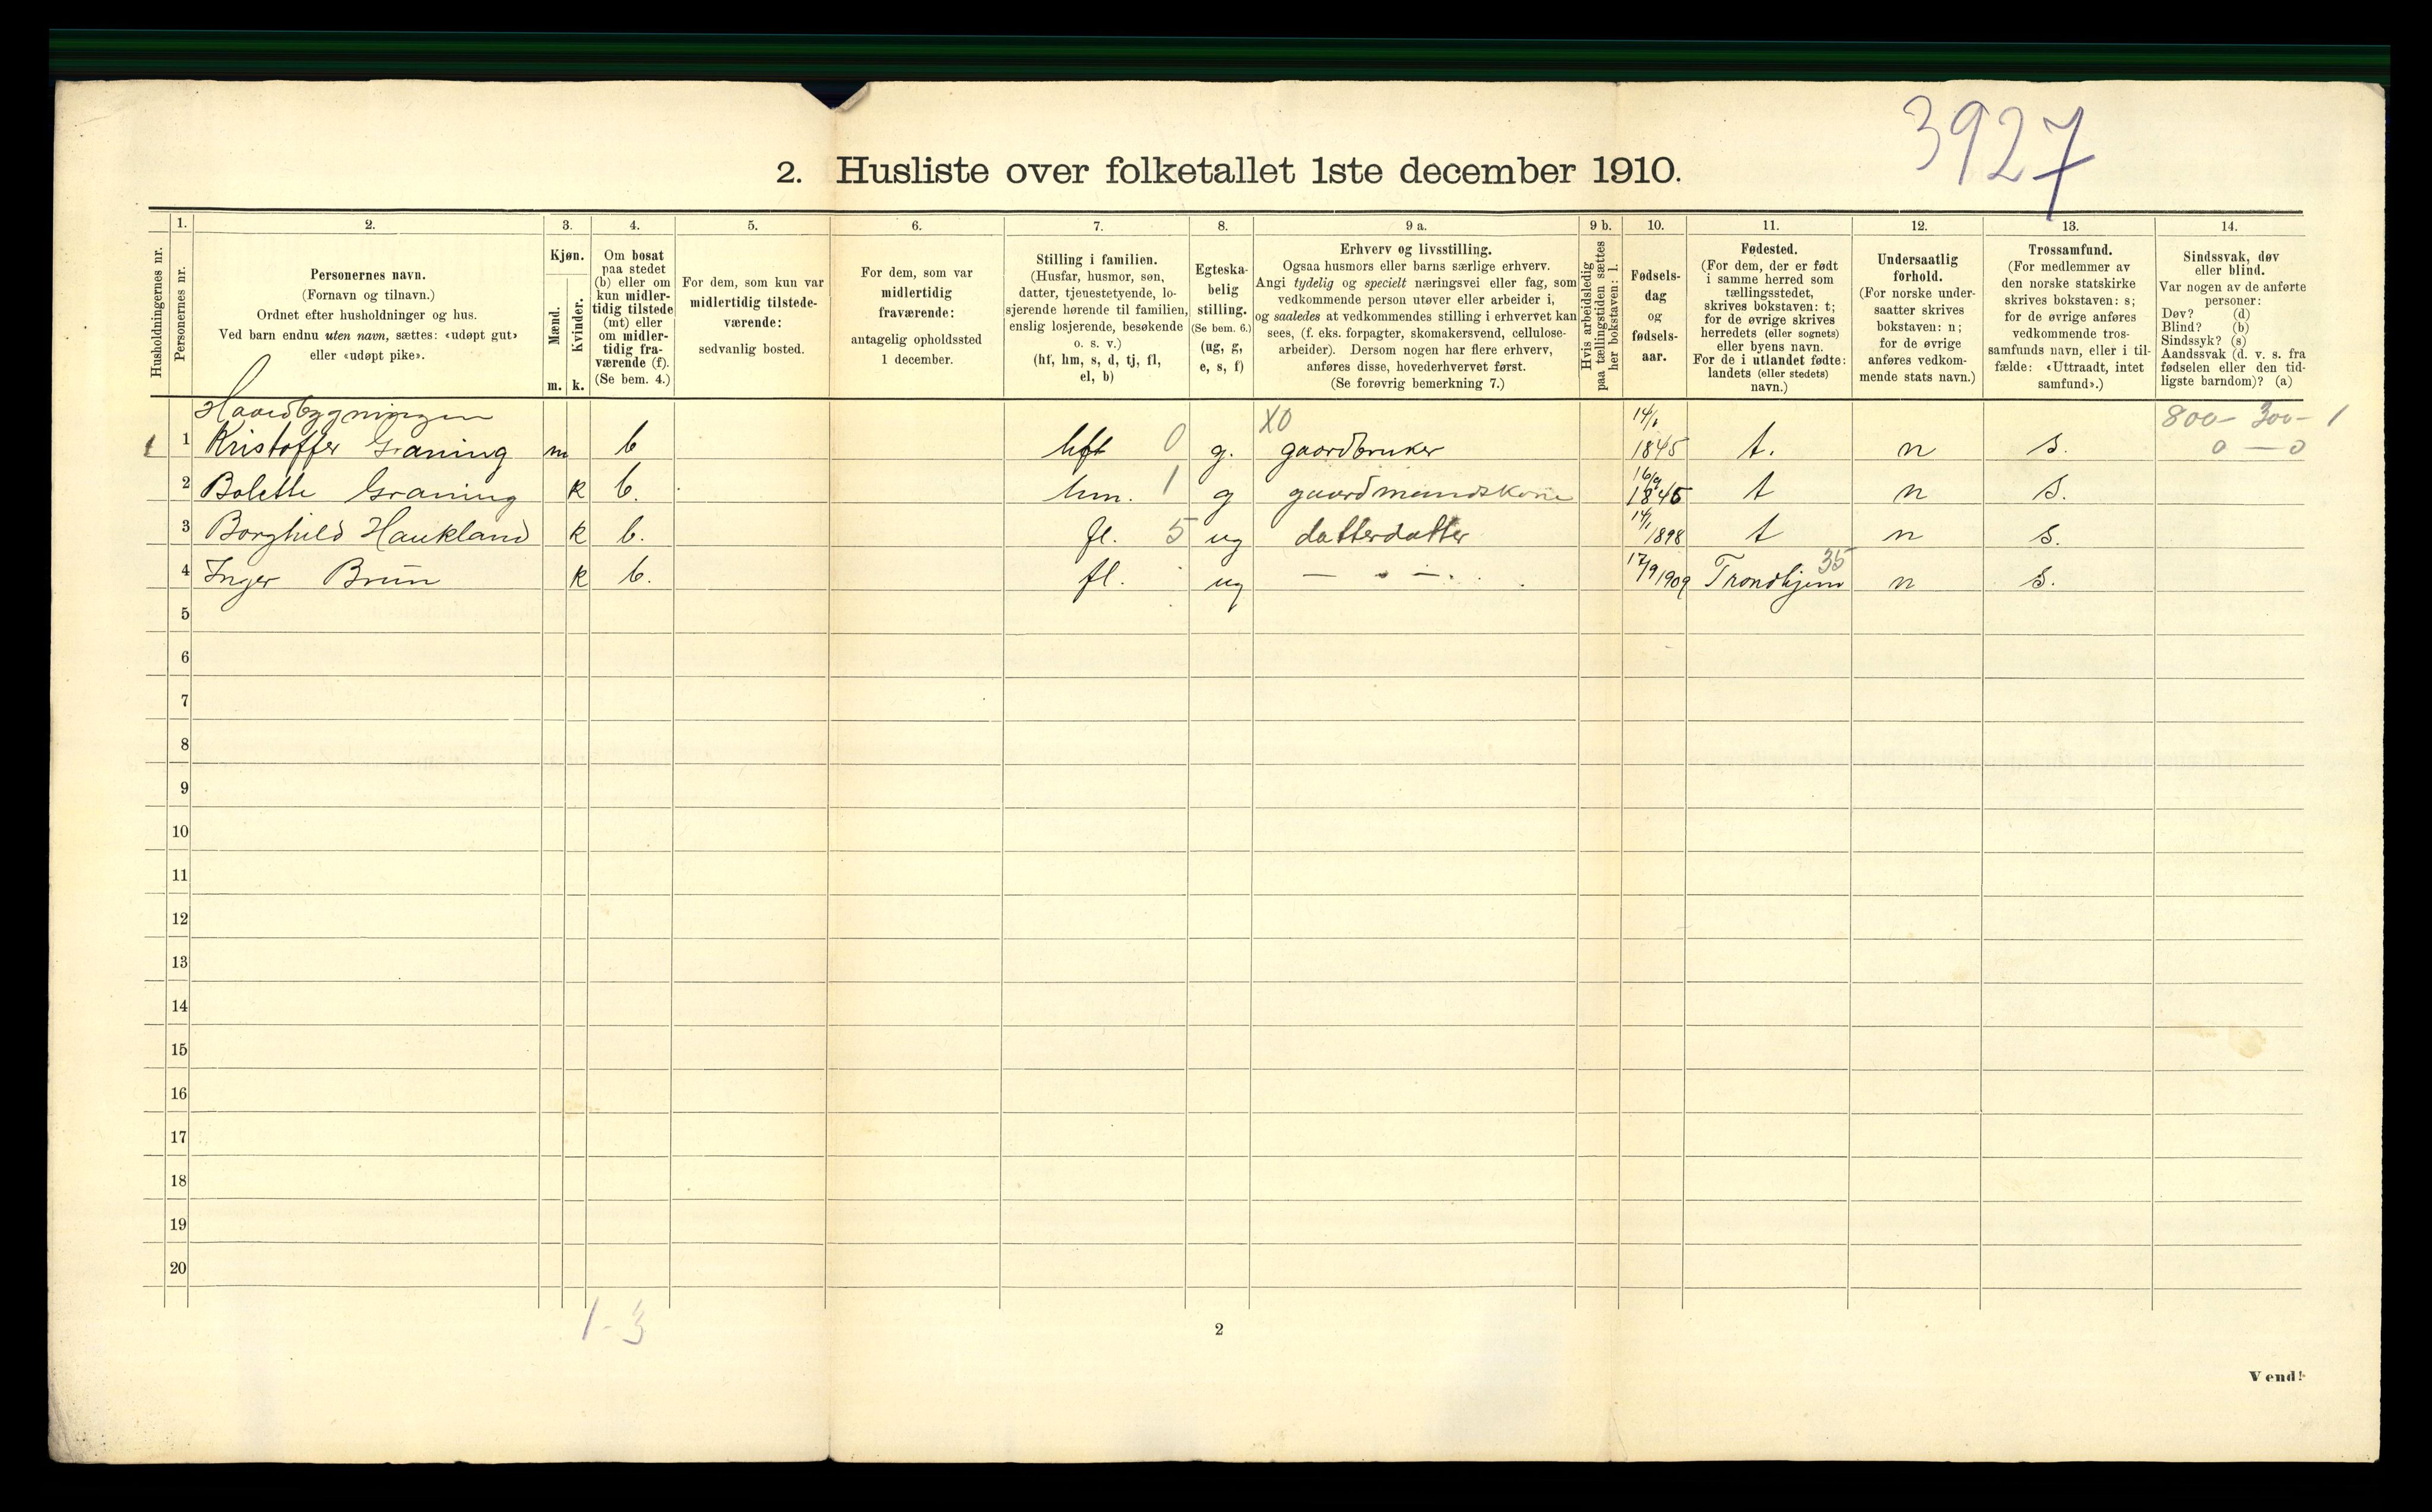 3927
2. Husliste over folketallet 1ste december 1910.
Husholdningernes nr.
1.
Personernes nr.
2.
Personernes navn.
(Fornavn og tilnavn.)
Ordnet efter husholdninger og hus.
Ved barn endnu uten navn, sættes: «udøpt gut»
eller «udøpt pike».
3.
Kjøn.
Mænd.
Kvinder.
m. k.
4.
Om bosat
paa stedet
(b) eller om
kun midler-
tidig tilstede
(mt) eller
om midler-
tidig fra-
værende (f).
(Se bem. 4.)
5.
For dem, som kun var
midlertidig tilstede-
værende:
sedvanlig bosted.
6.
For dem, som var
midlertidig
fraværende:
antagelig opholdssted
1 december.
7.
Stilling i familien.
(Husfar, husmor, søn,
datter, tjenestetyende, lo-
sjerende hørende til familien,
enslig losjerende, besøkende
o. s. v.)
(hf, hm, s, d, tj, fl,
el, b)
8.
Egteska-
belig
stilling.
(Se bem. 6.)
(ug, g,
e, s, f)
9 a.
Erhverv og livsstilling.
Ogsaa husmors eller barns særlige erhverv.
Angi tydelig og specielt næringsvei eller fag, som
vedkommende person utøver eller arbeider i,
og saaledes at vedkommendes stilling i erhvervet kan
sees, (f. eks. forpagter, skomakersvend, cellulose-
arbeider). Dersom nogen har flere erhverv,
anføres disse, hovederhvervet først.
(Se forøvrig bemerkning 7.)
9 b.
Hvis arbeidsledig
paa tællingstiden sættes
her bokstaven: l.
10.
Fødsels-
dag
og
fødsels-
aar.
11.
Fødested.
(For dem, der er født
i samme herred som
tællingsstedet,
skrives bokstaven: t;
for de øvrige skrives
herredets (eller sognets)
eller byens navn.
For de i utlandet fødte:
landets (eller stedets)
navn.)
12.
Undersaatlig
forhold.
(For norske under-
saatter skrives
bokstaven: n;
for de øvrige
anføres vedkom-
mende stats navn.)
13.
Trossamfund.
(For medlemmer av
den norske statskirke
skrives bokstaven: s;
for de øvrige anføres
vedkommende tros-
samfunds navn, eller i til-
fælde: «Uttraadt, intet
samfund».)
14.
Sindssvak, døv
eller blind.
Var nogen av de anførte
personer:
Døv? (d)
Blind? (b)
Sindssyk? (s)
Aandssvak (d. v. s. fra
fødselen eller den tid-
ligste barndom)? (a)
X0 14/1 800- 300- 1
1 1 Kristoffer Graning m b 0 g. gaardbruker 1845 t. n s. 0 — 0
2 Bolette Graning k b. hm. 1 g gaardmandskone t n s.
3 Borghild Haukland k b. fl. 5 ug datterdatter 14/1 1898 t n s.
4 Inger Brun k b. fl. ug — " — 17/9 1909 Trondhjem 35 n s.
5
6
7
8
9
10
11
12
13
14
15
16
17
18
19
20
1-3
2
Vend!